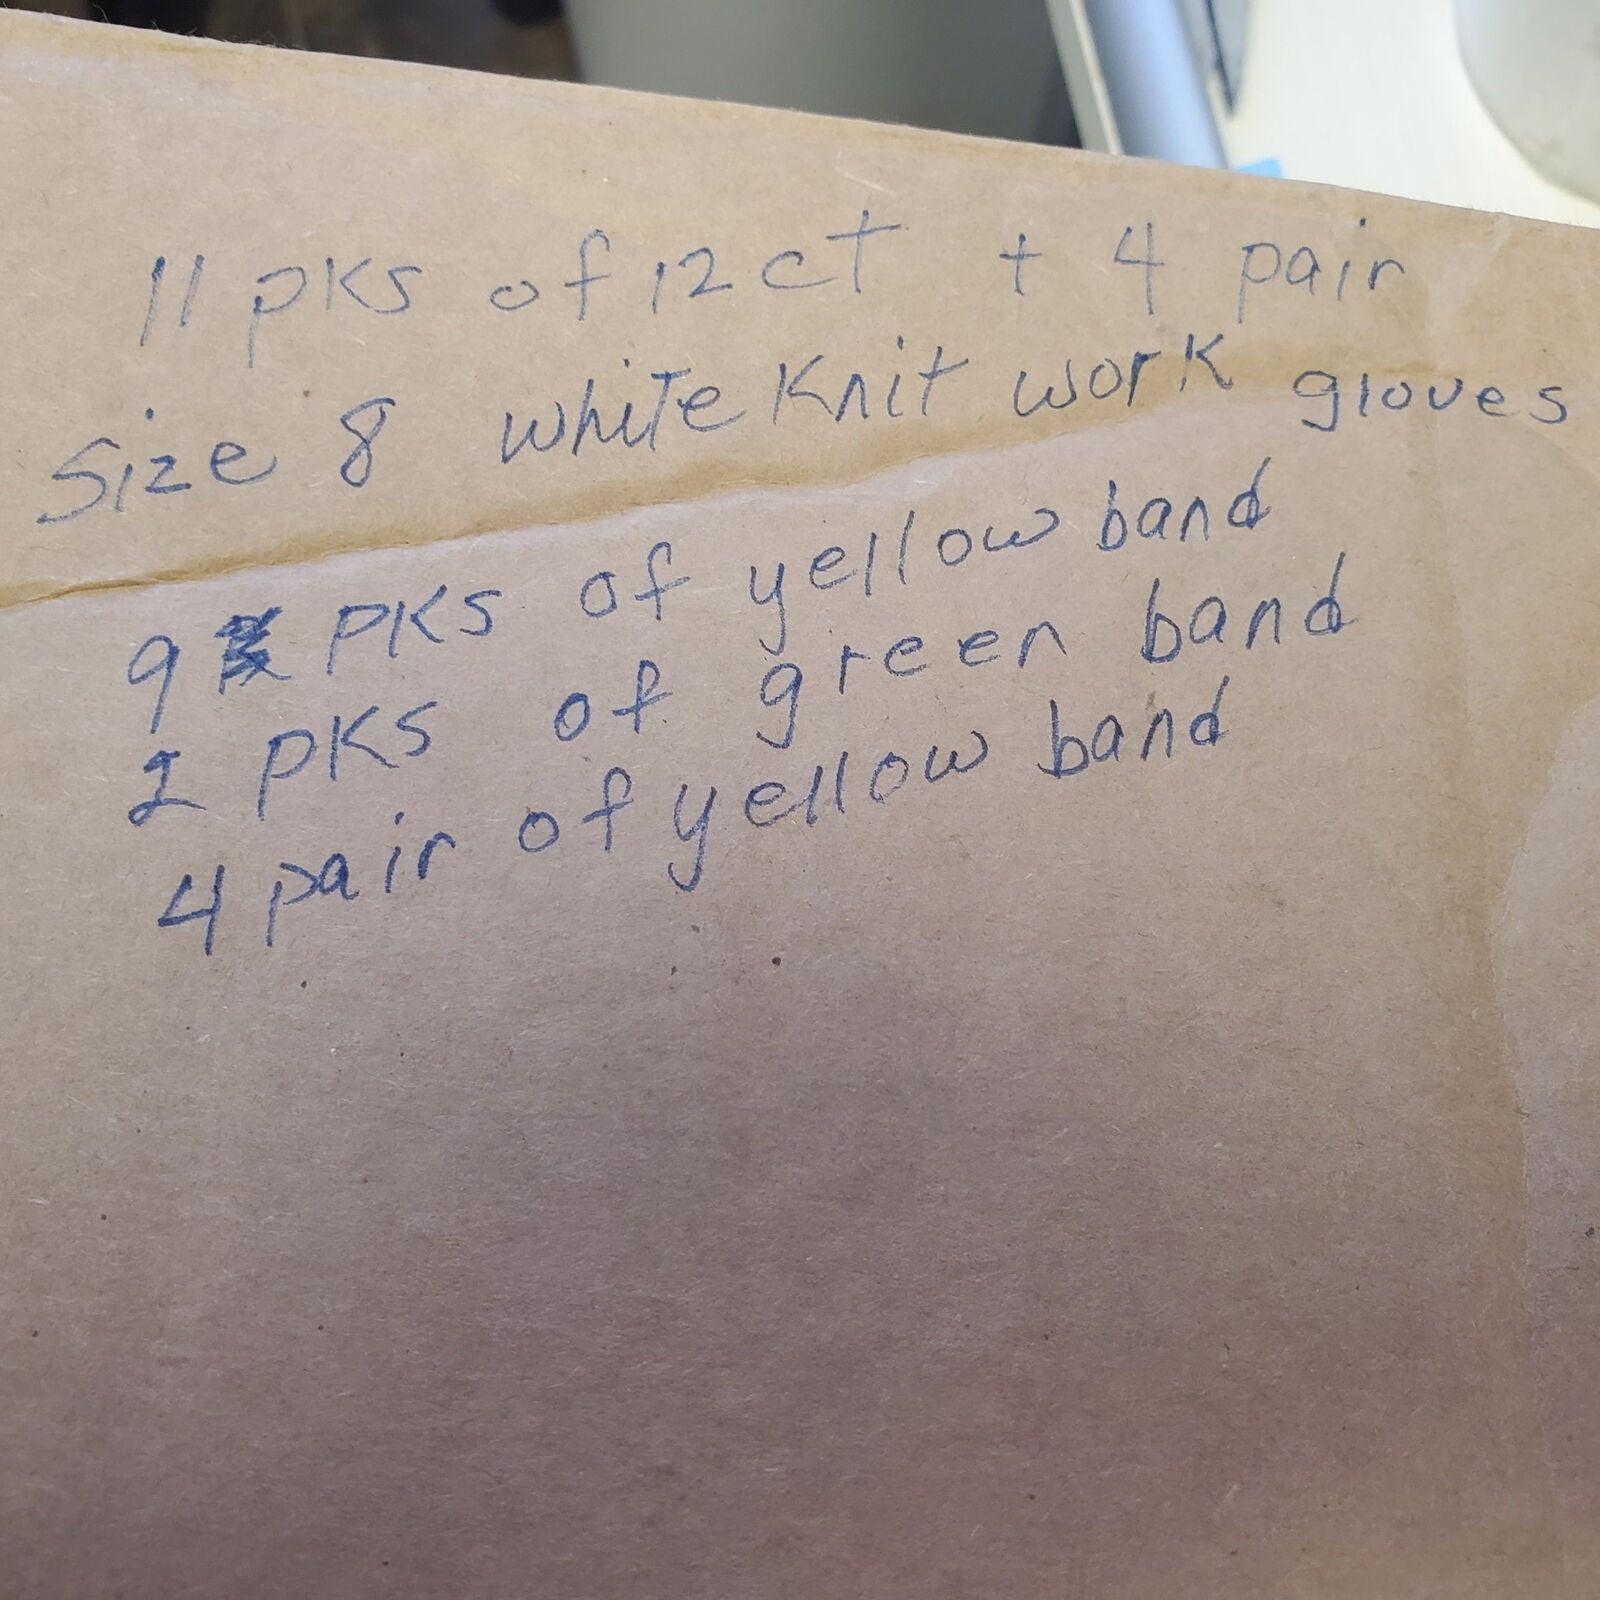 11 pks of 12 ct + 4 pair
Size 8 white Knit work gloves
9 pks of yellow band
2 pks of green band
4 pair of yellow band